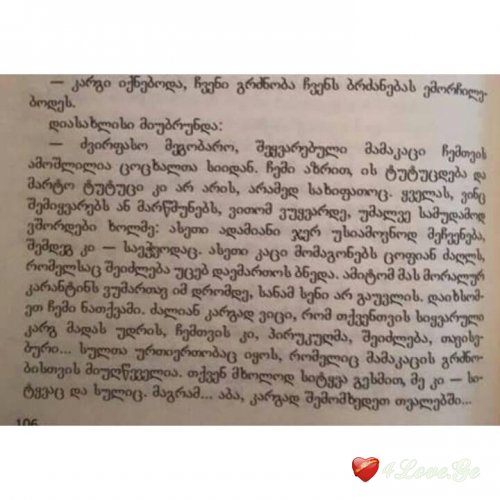 — კარგი იქნებოდა, ჩვენი გრძნობა ჩვენს ბრძანებას ემორჩილე-
ბოდეს.
დიასახლისი მიუბრუნდა:
— ძვირფასო მეგობარო, შეყვარებული მამაკაცი ჩემთვის
ამოშლილია ცოცხალთა სიიდან. ჩემი აზრით, ის ტუტუცდება და
მარტო ტუტუცი კი არ არის, არამედ სახიფათოც. ყველას, ვინც
შემიყვარებს ან მარწმუნებს, ვითომ ვუყვარდე, უმალვე სამუდამოდ
ვშორდები ხოლმე: ასეთი ადამიანი ჯერ უსიამოვნოდ მეჩვენება,
შემდეგ კი — საეჭვოდაც. ასეთი კაცი მომაგონებს ცოფიან ძაღლს,
რომელსაც შეიძლება უცებ დაემართოს ბნედა. ამიტომ მას მორალურ
კარანტინს ვუმართავ იმ დრომდე, სანამ სენი არ გაუვლის. დაიხსომ-
ეთ ჩემი ნათქვამი. ძალიან კარგად ვიცი, რომ თქვენთვის სიყვარული
კარგ მადას უდრის, ჩემთვის კი, პირუკუღმა, შეიძლება, თავისე-
ბური... სულთა ურთიერთობაც იყოს, რომელიც მამაკაცის გრძნო-
ბისთვის მიუღწეველია. თქვენ მხოლოდ სიტყვა გესმით, მე კი — სი-
ტყვაც და სულიც. მაგრამ... აბა, კარგად შემომხედეთ თვალებში...
106
4Love.Ge